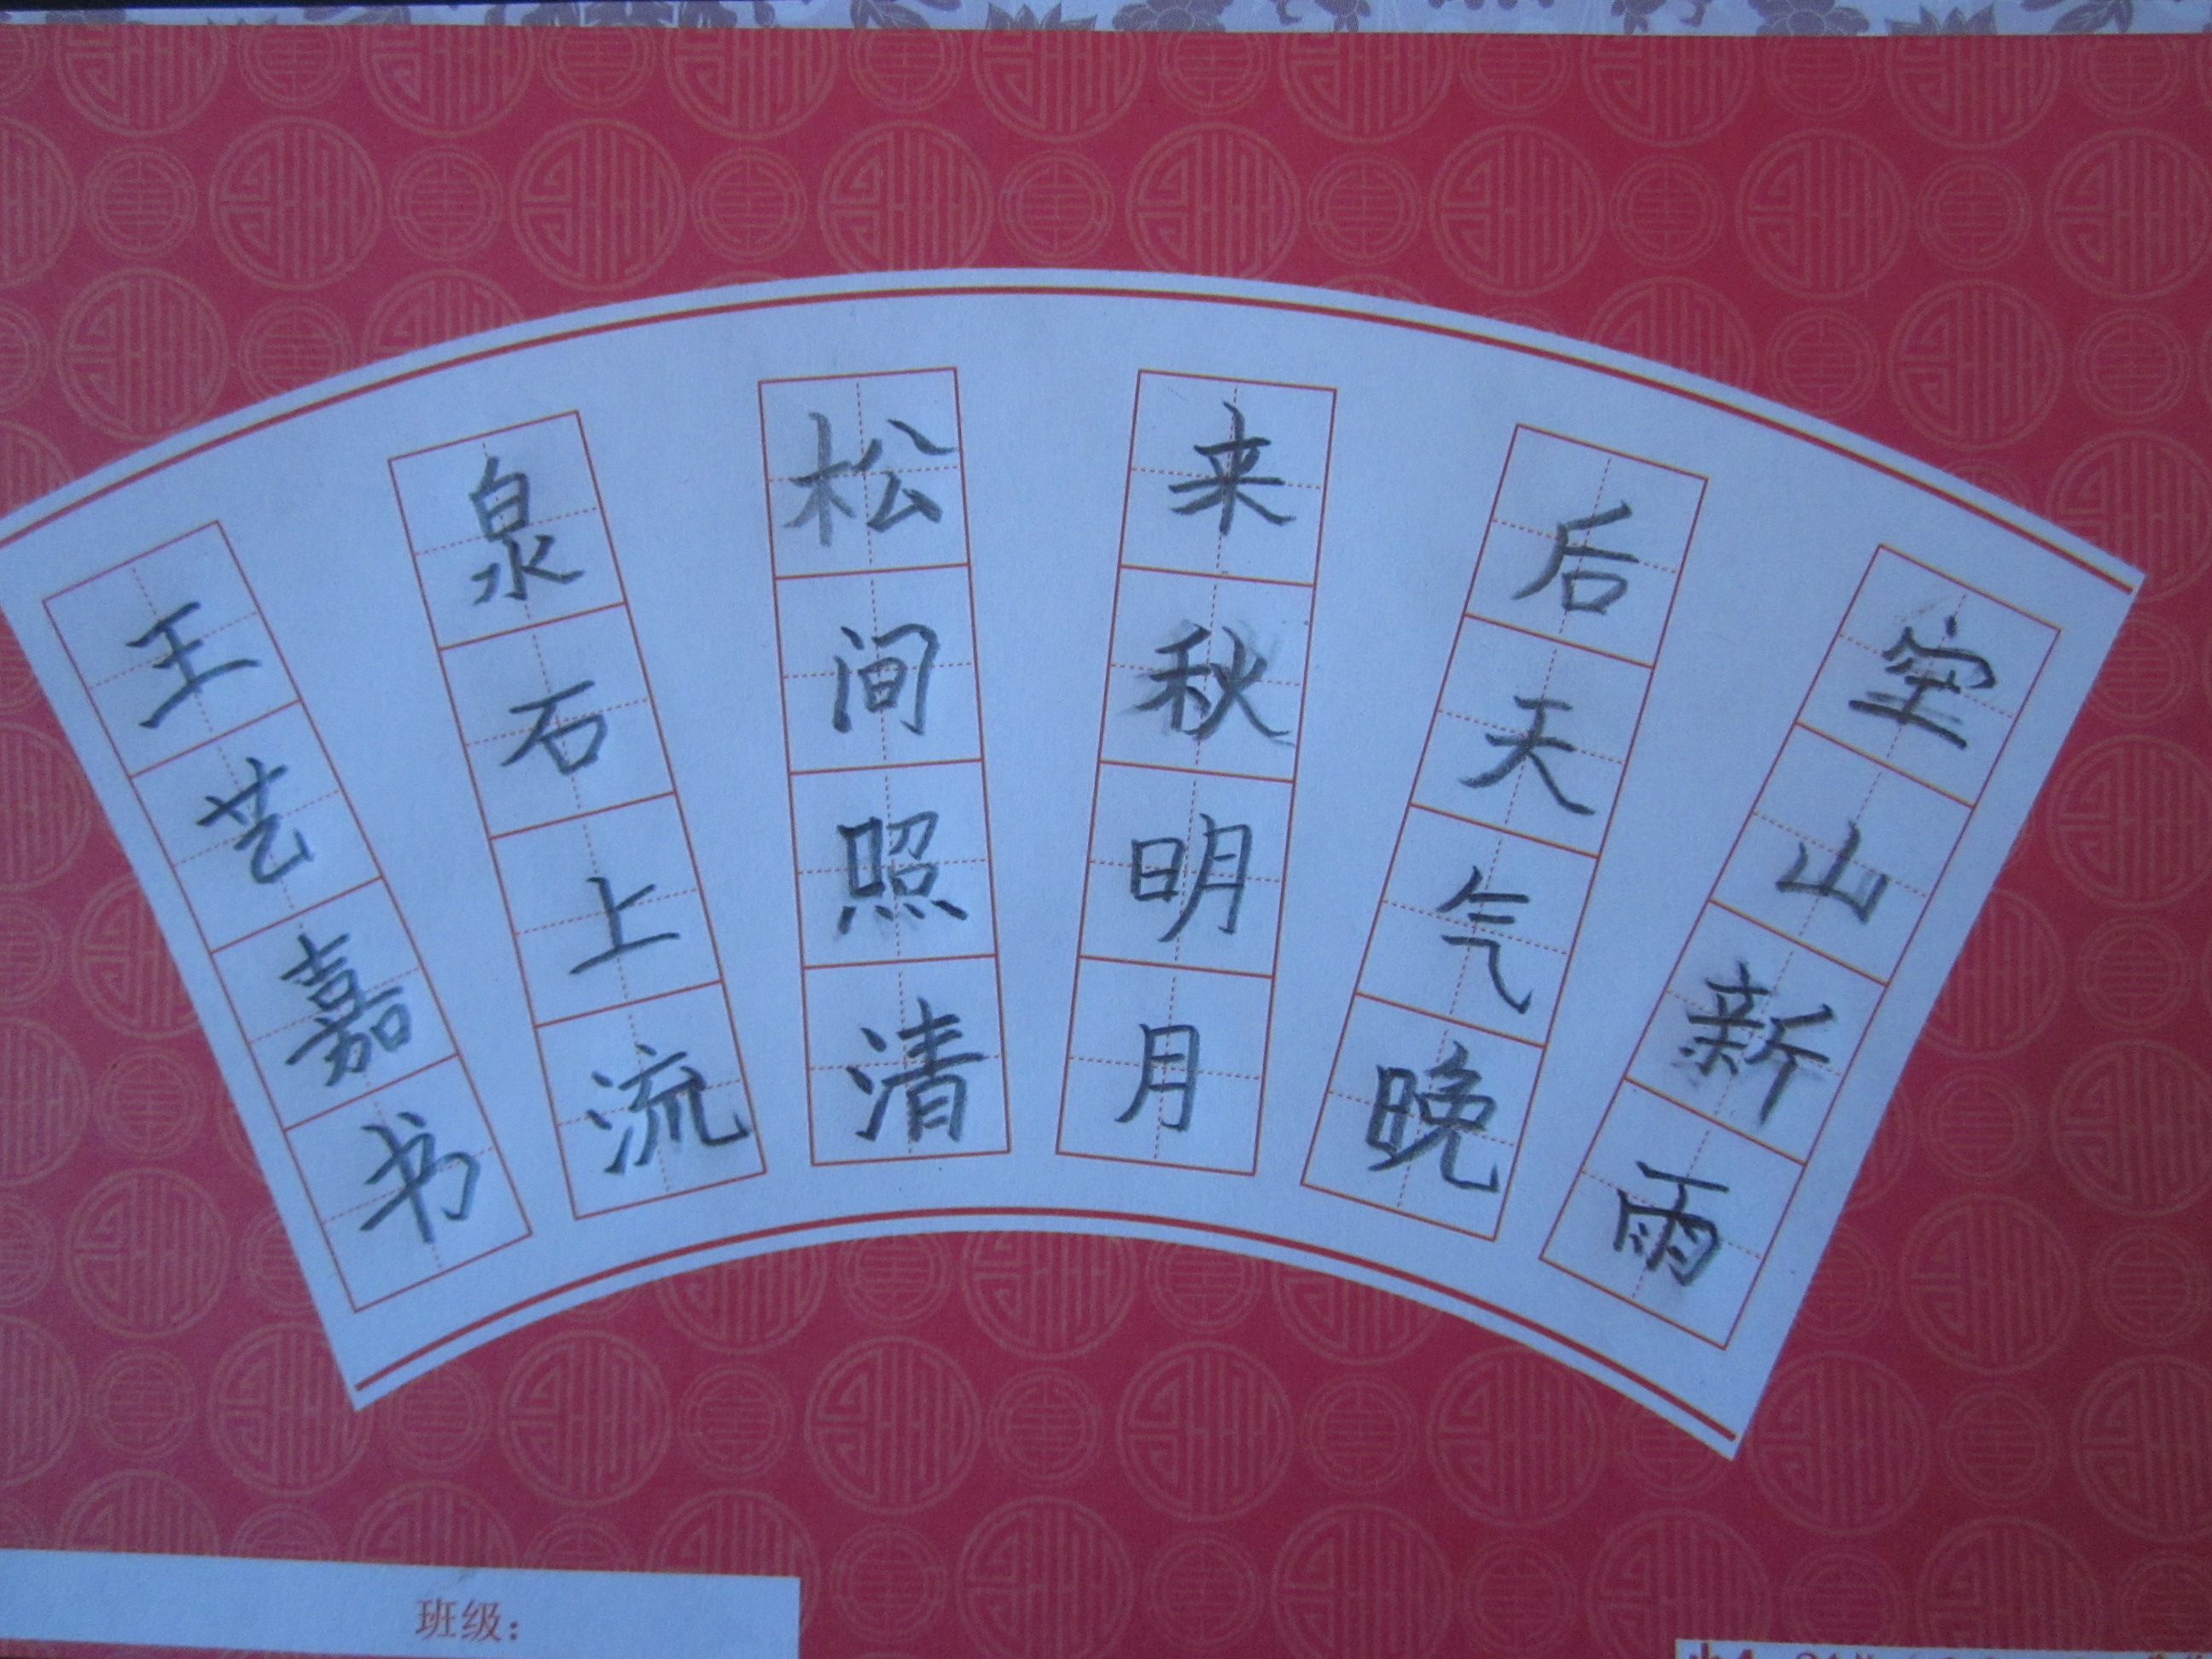 空山新雨
后天气晚
来秋明月
松间照清
泉石上流
王艺嘉书
班级：